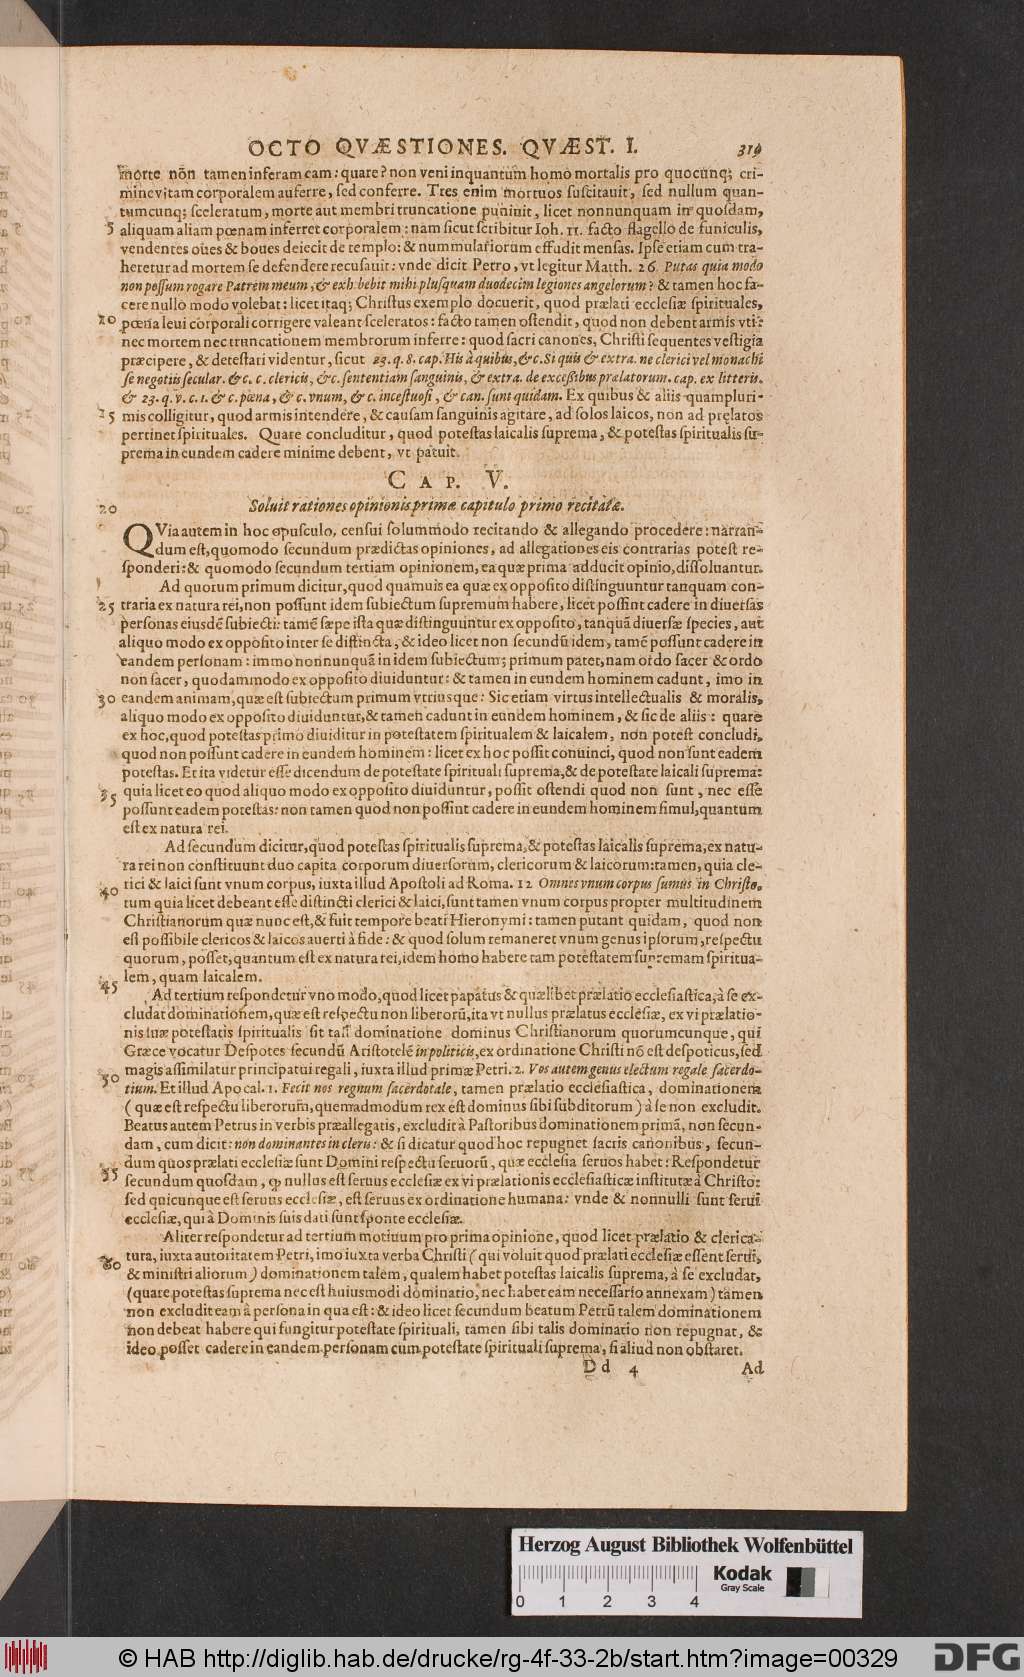 OCTO QVÆSTIONES. QVÆST. I. 319
morte nõn tamen inferam eam: quare? non veni inquantum homo mortalis pro quocunq; cri-
mine vitam corporalem auferre, sed conferre. Tres enim mortuos suscitauit, sed nullum quan-
tumcunq; sceleratum, morte aut membri truncatione puniuit, licet nonnunquam in quosdam,
5 aliquam aliam pœnam inferret corporalem: nam sicut scribitur Ioh. 11. facto flagello de funiculis,
vendentes oues & boues deiecit de templo: & nummulariorum effudit mensas. Ipse etiam cum tra-
heretur ad mortem se defendere recusauit: vnde dicit Petro, vt legitur Matth. 26. Putas quia modo
non possum rogare Patrem meum, & exhibebit mihi plusquam duodecim legiones angelorum? & tamen hoc fa-
cere nullo modo volebat: licet itaq; Christus exemplo docuerit, quod prælati ecclesiæ spirituales,
10 pœna leui corporali corrigere valeant sceleratos: facto tamen ostendit, quod non debent armis vti:
nec mortem nec truncationem membrorum inferre: quod sacri canones, Christi sequentes vestigia
præcipere, & detestari videntur, sicut 23. q. 8. cap. His à quibus, &c. Si quis & extra. ne clerici vel monachi
se negotiis secular. &c. c. clericis, &c. sententiam sanguinis, & extra. de excessibus prælatorum. cap. ex litteris.
& 23. q. v. c. 1. & c. pœna, & c. vnum, & c. incestuosi, & can. sunt quidam. Ex quibus & aliis quampluri-
15 mis colligitur, quod armis intendere, & causam sanguinis agitare, ad solos laicos, non ad prelatos
pertinet spirituales. Quare concluditur, quod potestas laicalis suprema, & potestas spiritualis su-
prema in eundem cadere minime debent, vt patuit.
CAP. V.
20 Soluit rationes opinionis primæ capitulo primo recitatæ.
QVia autem in hoc opusculo, censui solummodo recitando & allegando procedere: narran-
dum est, quomodo secundum prædictas opiniones, ad allegationes eis contrarias potest re-
sponderi: & quomodo secundum tertiam opinionem, ea quæ prima adducit opinio, dissoluantur.
Ad quorum primum dicitur, quod quamuis ea quæ ex opposito distinguuntur tanquam con-
25 traria ex natura rei, non possunt idem subiectum supremum habere, licet possint cadere in diuersas
personas eiusdẽ subiecti: tamẽ sæpe ista quæ distinguuntur ex opposito, tanquã diuersæ species, aut
aliquo modo ex opposito inter se distincta, & ideo licet non secundũ idem, tamẽ possunt cadere in
eandem personam: immo nonnunquã in idem subiectum; primum patet, nam ordo sacer & ordo
non sacer, quodammodo ex opposito diuiduntur: & tamen in eundem hominem cadunt, imo in
30 eandem animam, quæ est subiectum primum vtriusque: Sic etiam virtus intellectualis & moralis,
aliquo modo ex opposito diuiduntur, & tamen cadunt in eundem hominem, & sic de aliis: quare
ex hoc, quod potestas primo diuiditur in potestatem spiritualem & laicalem, non potest concludi,
quod non possunt cadere in eundem hominem: licet ex hoc possit conuinci, quod non sunt eadem
potestas. Et ita videtur esse dicendum de potestate spirituali suprema, & de potestate laicali suprema:
35 quia licet eo quod aliquo modo ex opposito diuiduntur, possit ostendi quod non sunt, nec esse
possunt eadem potestas: non tamen quod non possint cadere in eundem hominem simul, quantum
est ex natura rei.
Ad secundum dicitur, quod potestas spiritualis suprema, & potestas laicalis suprema, ex natu-
ra rei non constituunt duo capita corporum diuersorum, clericorum & laicorum: tamen, quia cle-
40 rici & laici sunt vnum corpus, iuxta illud Apostoli ad Roma. 12 Omnes vnum corpus sumus in Christo.
tum quia licet debeant esse distincti clerici & laici, sunt tamen vnum corpus propter multitudinem
Christianorum quæ nunc est, & fuit tempore beati Hieronymi: tamen putant quidam, quod non
est possibile clericos & laicos auerti à fide: & quod solum remaneret vnum genus ipsorum, respectu
quorum, posset, quantum est ex natura rei, idem homo habere tam potestatem supremam spiritua-
45 lem, quam laicalem.
Ad tertium respondetur vno modo, quod licet papatus & quælibet prælatio ecclesiastica, à se ex-
cludat dominationem, quæ est respectu non liberorũ, ita vt nullus prælatus ecclesiæ, ex vi prælatio-
nis suæ potestatis spiritualis sit tali dominatione dominus Christianorum quorumcunque, qui
Græce vocatur Despotes secundũ Aristotelẽ in politicis, ex ordinatione Christi nõ est despoticus, sed
magis assimilatur principatui regali, iuxta illud primæ Petri. 2. Vos autem genus electum regale sacerdo-
50 tium. Et illud Apocal. 1. Fecit nos regnum sacerdotale, tamen prælatio ecclesiastica, dominationem
( quæ est respectu liberorum, quemadmodum rex est dominus sibi subditorum ) à se non excludit.
Beatus autem Petrus in verbis præallegatis, excludit à Pastoribus dominationem primã, non secun-
dam, cum dicit: non dominantes in cleru: & si dicatur quod hoc repugnet sacris canonibus, secun-
dum quos prælati ecclesiæ sunt Domini respectu seruorũ, quæ ecclesia seruos habet: Respondetur
55 secundum quosdam, ꝙ nullus est seruus ecclesiæ ex vi prælationis ecclesiasticæ institutæ à Christo:
sed quicunque est seruus ecclesiæ, est seruus ex ordinatione humana: vnde & nonnulli sunt serui
ecclesiæ, qui à Dominis suis dati sunt sponte ecclesiæ.
Aliter respondetur ad tertium motiuum pro prima opinione, quod licet prælatio & clerica-
60 tura, iuxta autoritatem Petri, imo iuxta verba Christi ( qui voluit quod prælati ecclesiæ essent serui,
& ministri aliorum ) dominationem talem, qualem habet potestas laicalis suprema, à se excludat,
(quare potestas suprema nec est huiusmodi dominatio, nec habet eam necessario annexam) tamen
non excludit eam à persona in qua est: & ideo licet secundum beatum Petrũ talem dominationem
non debeat habere qui fungitur potestate spirituali, tamen sibi talis dominatio non repugnat, &
ideo posset cadere in eandem personam cum potestate spirituali suprema, si aliud non obstaret.
Dd 4 Ad
Herzog August Bibliothek Wolfenbüttel
Kodak
Gray Scale
0 1 2 3 4
© HAB http://diglib.hab.de/drucke/rg-4f-33-2b/start.htm?image=00329
DFG